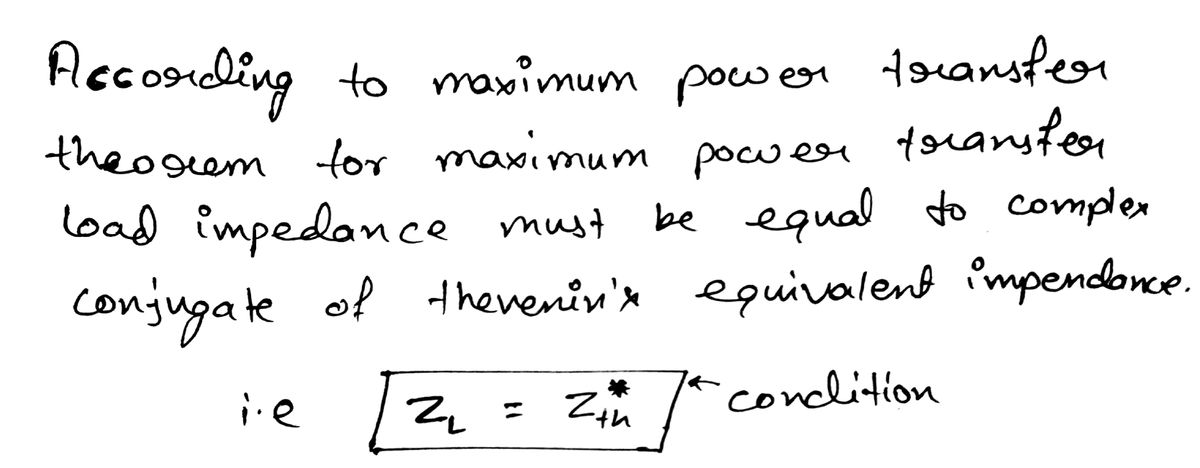 According to maximum power transfer
theorem for maximum power transfer
load impedance must be equal to complex
conjugate of thevenin's equivalent impendance.
i.e Z_L = Z_th^* ← condition